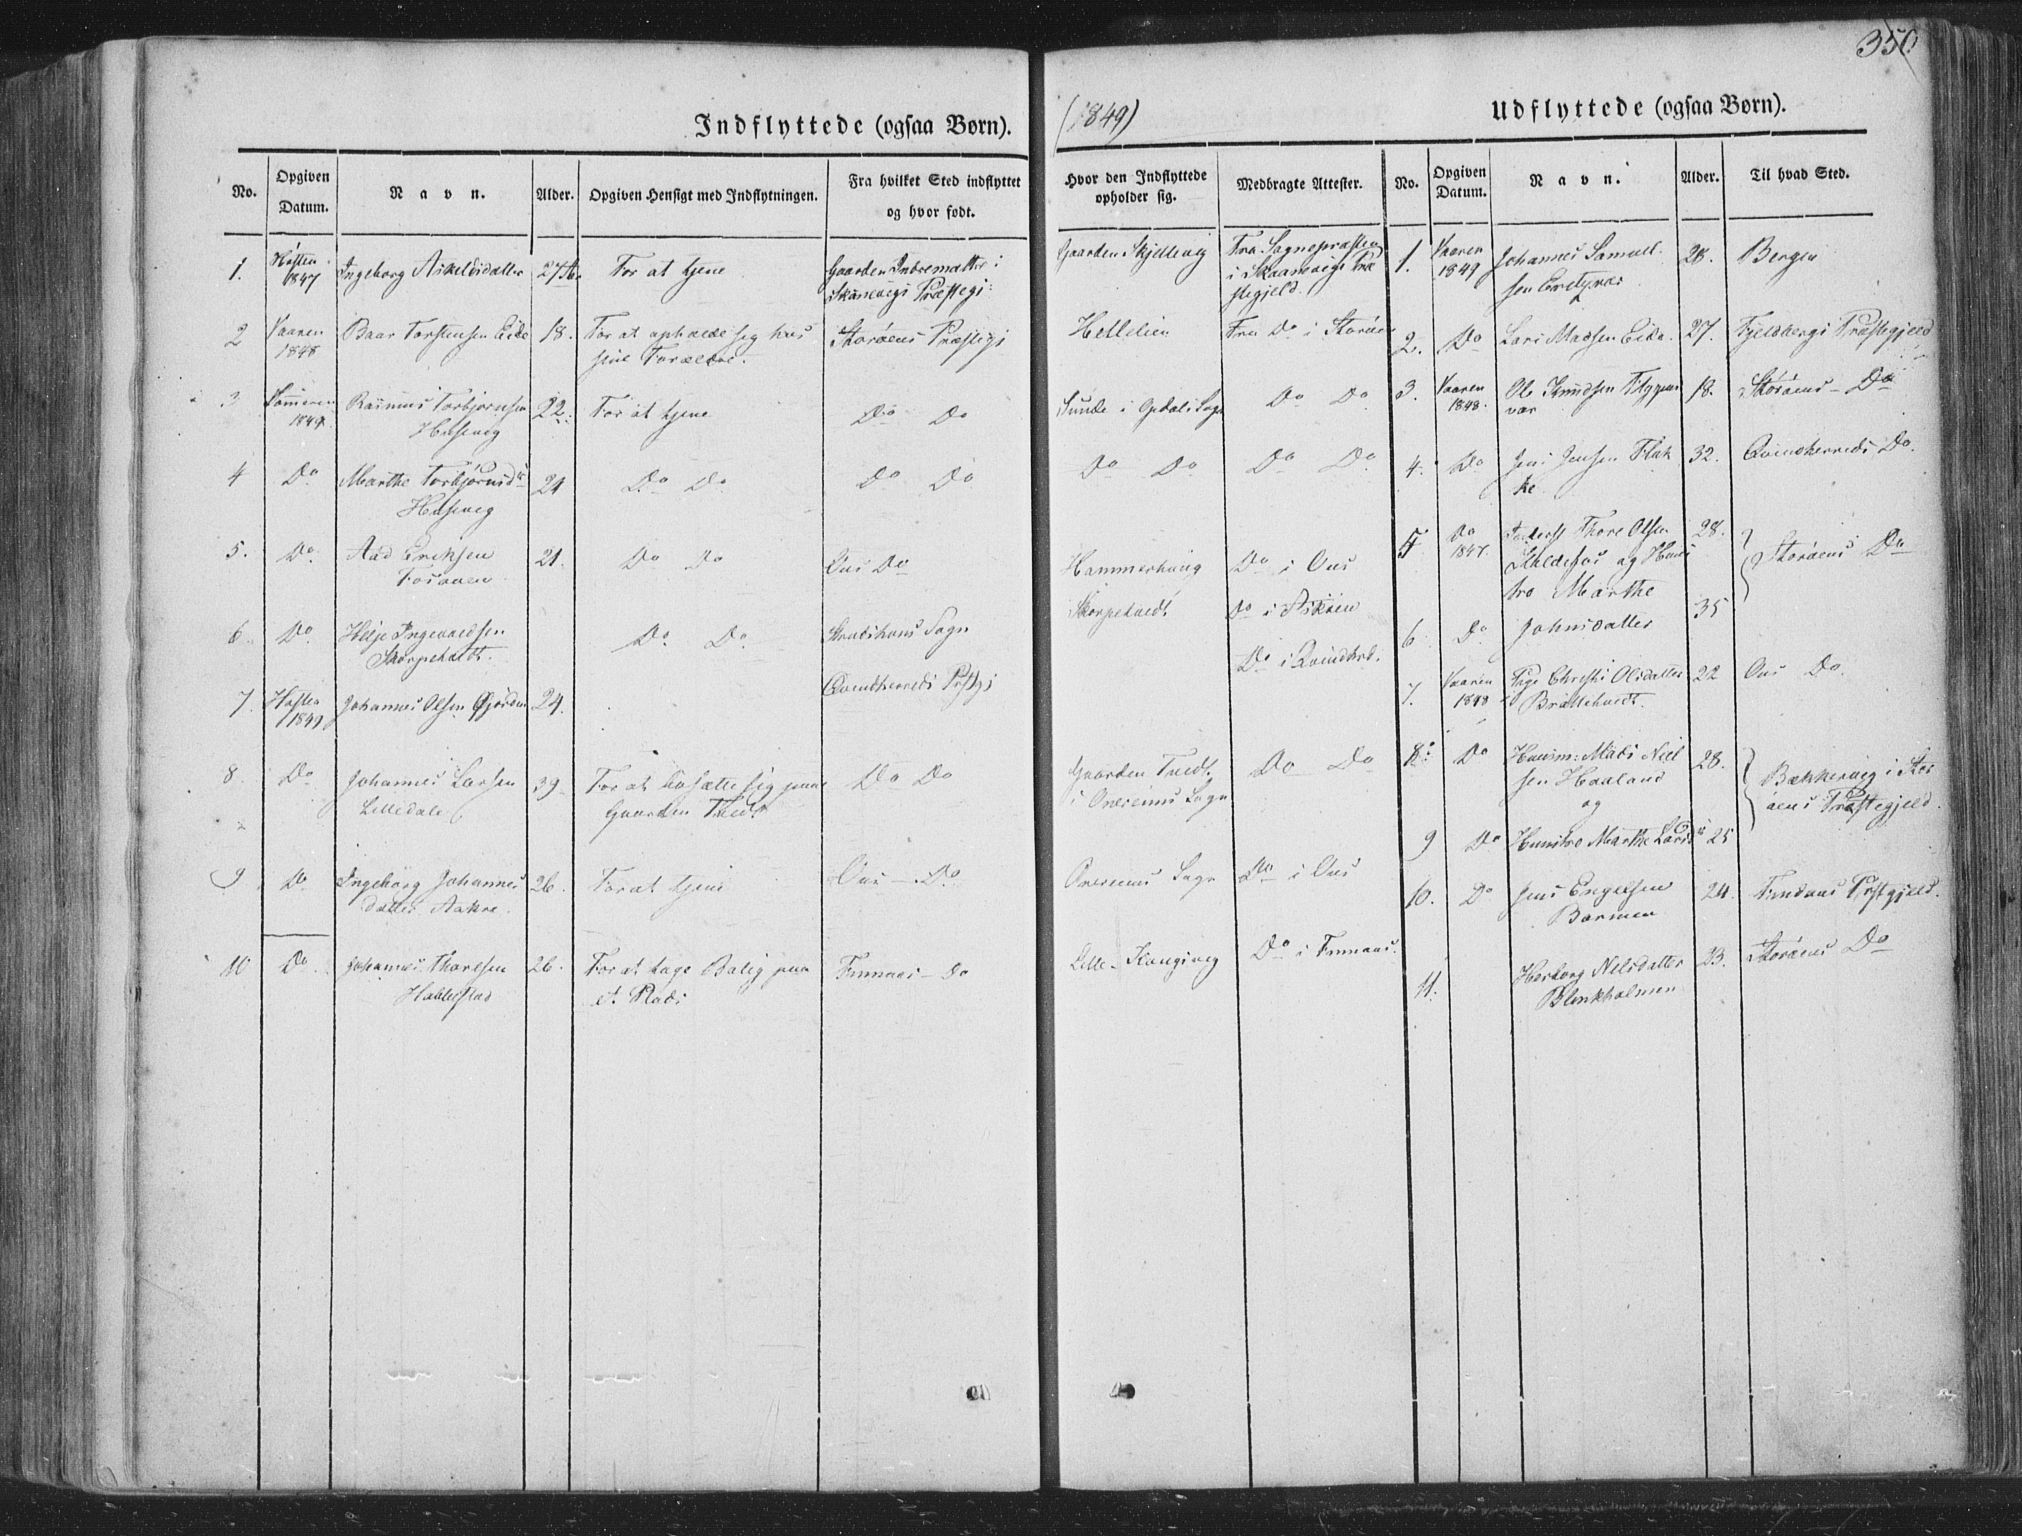 350
Indflyttede (ogsaa Børn).
(1849)
Udflyttede (ogsaa Børn).
No. Opgiven Datum. Navn. Alder. Opgiven Hensigt med Indflytningen. Fra hvilket Sted indflyttet og hvor født. Hvor den Indflyttede opholder sig. Medbragte Attester.
1. Høsten 1847 Ingeborg Askelsdatter 27 For at tjene Gaarden i Skaanevigs Præstegj: Gaarden Skjellevig Fra Sognepræsten i Skaanevigs Præstegjeld.
2 Vaaren 1848 Baar Torstensen Eide 18. For at opholde sig hos sine Forældre. Storøens Præstegj Helleliein Fra Do i Storøen
3 Sommeren 1849 Rasmus Torbjørnsen Husevig 22. For at tjene Do Do Sunde i Opdals Sogn Do Do
4 Do Marthe Torbjørnsd. Husevig 24 Do Do Do Do Do Do Do Do
5. Do Aad Eriksen Fosaaen 21. Do Do Ous Do Hammerhaug Do i Ous
6. Do Helje Ingevaldsen Skorpehvedt. Do Do Sogn Skorpehvedt Do i Askøen
7. Høsten 1849 Johannes Olsen Gjørden 24. Qvindherreds Præstgj Do i Qvindhrd.
8. Do Johannes Larsen Lilledale 39. For at bosætte sig paa Gaarden Tvedt Do Do Gaarden Tvedt i Onereims Sogn Do Do
9. Do Ingeborg Johannesdatter Aakre. 26. For at tjene Ous Do Onereims Sogn Do i Ous
10 Do Johannes Thoresen Hablestad 26. For at tage Bolig paa et Plads Finnaas Do Lille Kongsvig Do i Finnaas.
No. Opgiven Datum. Navn. Alder. Til hvad Sted.
1. Vaaren 1849 Johannes Samuelsen 28. Bergen
2. Do Lars Madsen Eide. 27. Fjeldbergs Præstegjeld
3. Vaaren 1848. Ole Knudsen 18. Storøens Do
4. Do Jens Jensen Flakke 32. Qvindherreds Do.
5 Do 1847. Thore Olsen og Hustro Marthe 28. Storøens Do
6 Do Johnsdatter 35
7. Vaaren 1848 Pige Christi Olsdatter Brattehvedt. 22 Ous Do.
8. Do Huusm: Mads Nielsen Haaland og 28. Bækkervig i Storøens Præstegjeld.
9 Do Hustro Marthe Larsd 25
10. Do Jens Engelsen Barmen 24. Findaas Præstgjeld.
11. Herborg Nilsdatter Blinkholmen 23. Storøens Do